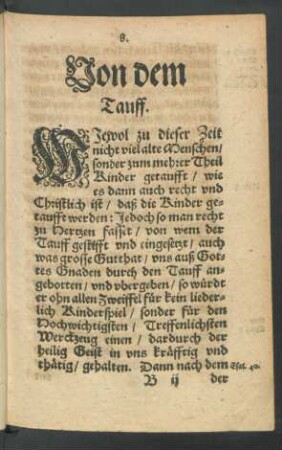 8.
Von dem
Tauff.
WJewol zu dieser Zeit
nicht viel alte Menschen/
sonder zum mehrer Theil
Kinder getaufft / wie
es dann auch recht vnd
Christlich ist / daß die Kinder ge-
taufft werden: Jedoch so man recht
zu Hertzen fasset / von wem der
Tauff gestifft vnd eingesetzt / auch
was grosse Gutthat / vns auß Got-
tes Gnaden durch den Tauff an-
gebotten / vnd vbergeben / so würdt
er ohn allen Zweiffel für kein lieder-
lich Kinderspiel / sonder für den
Hochwichtigsten / Treffenlichsten
Werckzeug einen / dardurch der
heilig Geist in vns kräfftig vnd
thätig / gehalten. Dann nach dem
B ij der